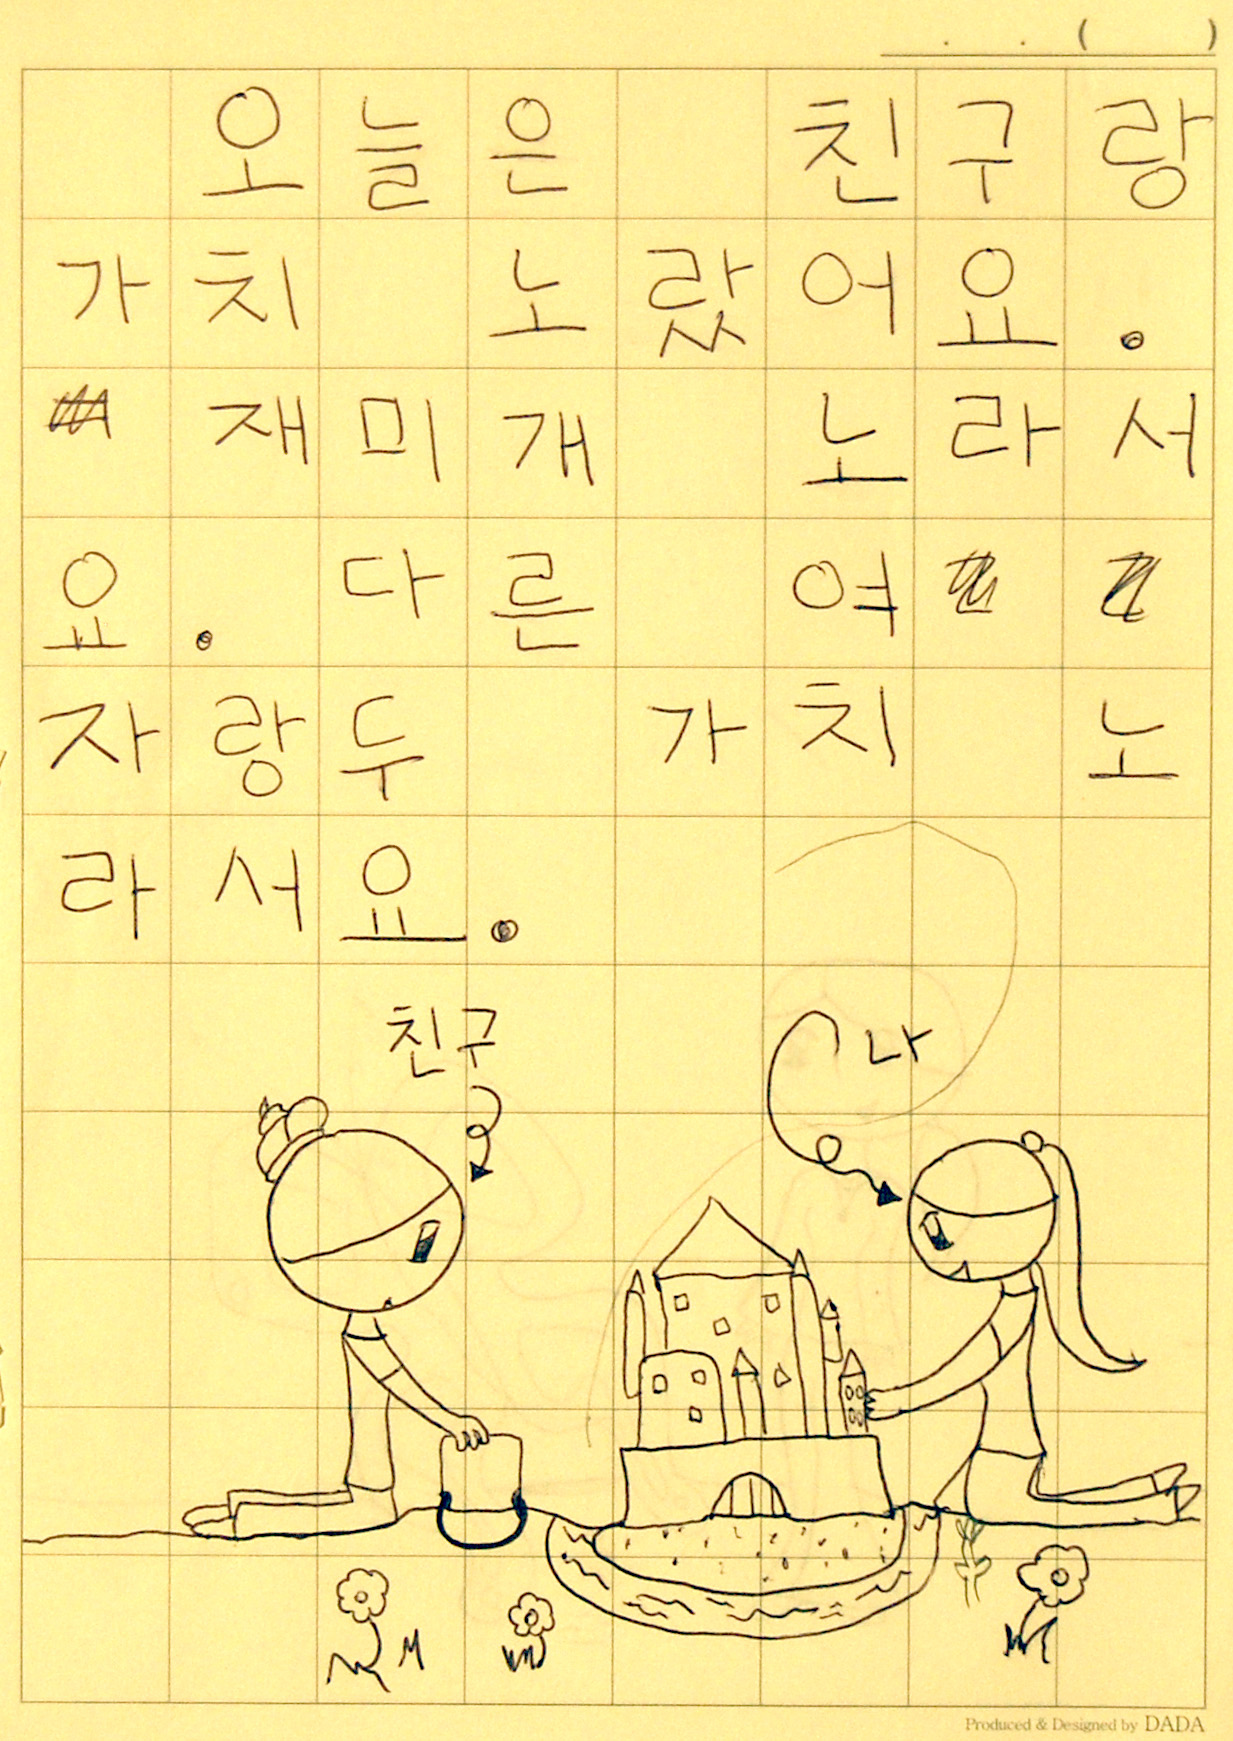 . . ( )
오늘은 친구랑
가치 노랐어요.
재미개 노라서
요. 다른 여
자랑두 가치 노
라서요.
친구
나
Produced & Designed by DADA